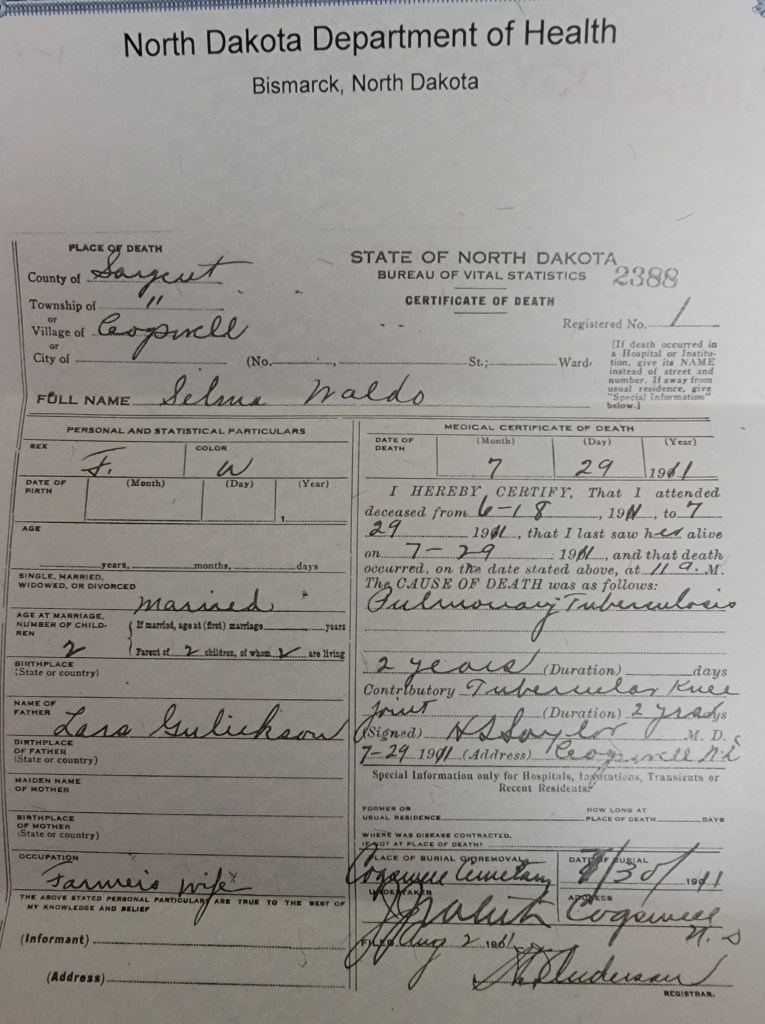 North Dakota Department of Health
Bismarck, North Dakota
PLACE OF DEATH
County of Sargent
Township of "
or
Village of Cogswell
or
City of
STATE OF NORTH DAKOTA
BUREAU OF VITAL STATISTICS 2388
CERTIFICATE OF DEATH
Registered No. 1
(No. , St.; Ward
[If death occurred in
a Hospital or Institu-
tion, give its NAME
instead of street and
number. If away from
usual residence, give
"Special Information"
below.]
FULL NAME Selma Waldo
PERSONAL AND STATISTICAL PARTICULARS
SEX COLOR
F. W
DATE OF BIRTH (Month) (Day) (Year)
1
AGE
years, months, days
SINGLE, MARRIED,
WIDOWED, OR DIVORCED
Married
AGE AT MARRIAGE,
NUMBER OF CHILD-
REN
2
If married, age at (first) marriage years
Parent of 2 children, of whom 2 are living
BIRTHPLACE
(State or country)
NAME OF
FATHER
Lars Gulickson
BIRTHPLACE
OF FATHER
(State or country)
MAIDEN NAME
OF MOTHER
BIRTHPLACE
OF MOTHER
(State or country)
OCCUPATION
Farmer's wife
THE ABOVE STATED PERSONAL PARTICULARS ARE TRUE TO THE BEST OF
MY KNOWLEDGE AND BELIEF
(Informant)
(Address)
MEDICAL CERTIFICATE OF DEATH
DATE OF DEATH (Month) (Day) (Year)
7 29 1911
I HEREBY CERTIFY, That I attended
deceased from 6-18, 1911, to 7
29 1911, that I last saw her alive
on 7-29 1911, and that death
occurred, on the date stated above, at 11 a. M.
The CAUSE OF DEATH was as follows:
Pulmonary Tuberculosis
2 years (Duration) days
Contributory Tubercular Knee
joint (Duration) 2 yrs days
(Signed) H S Saylor M. D.
7-29 1911 (Address) Cogswell N.D.
Special Information only for Hospitals, Institutions, Transients or
Recent Residents.
FORMER OR
USUAL RESIDENCE
HOW LONG AT
PLACE OF DEATH DAYS
WHERE WAS DISEASE CONTRACTED,
IF NOT AT PLACE OF DEATH?
PLACE OF BURIAL OR REMOVAL DATE OF BURIAL
Cogswell Cemetary 7/30/ 1911
UNDERTAKER ADDRESS
Cogswell
N.D
FILED Aug 2 1911
Anderson
REGISTRAR.